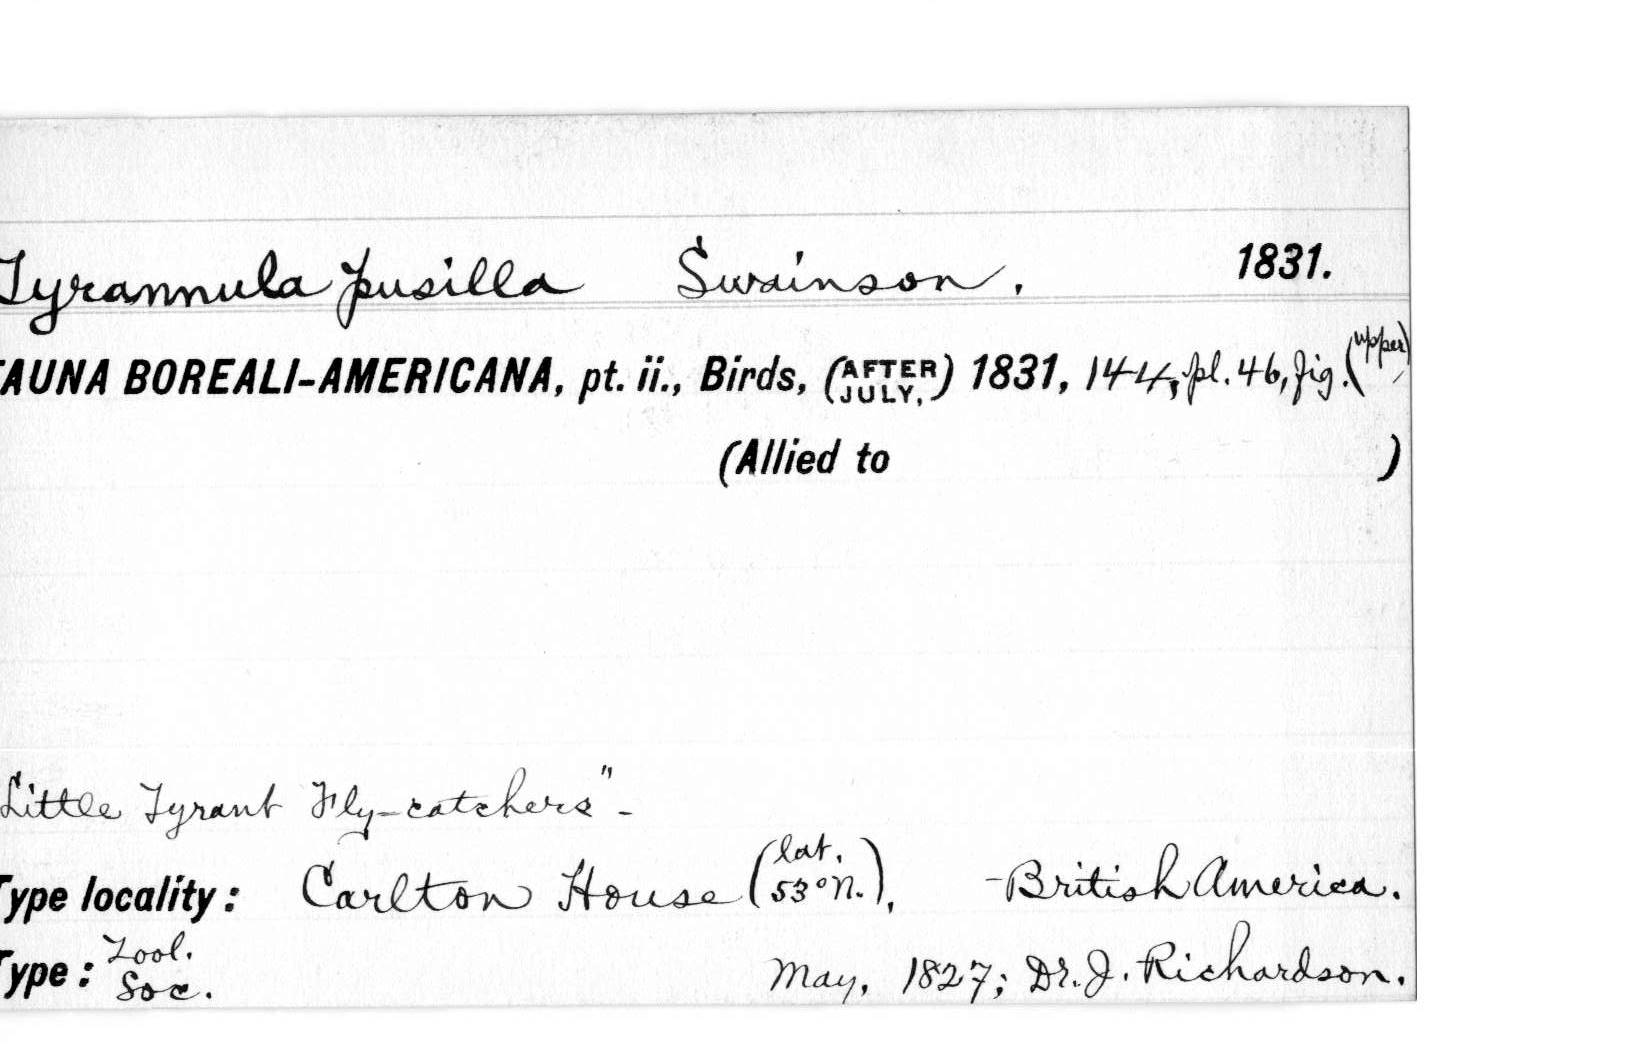 Tyrannula pusilla Swainson. 1831.
FAUNA BOREALI-AMERICANA, pt. ii., Birds, (AFTER JULY,) 1831, 144, pl. 46, fig. (upper)
(Allied to )
Little Tyrant Fly-catchers" -
Type locality: Carlton House (lat. 53° N.), -British America.
Type: Zool. Soc. May, 1827; Dr. J. Richardson.